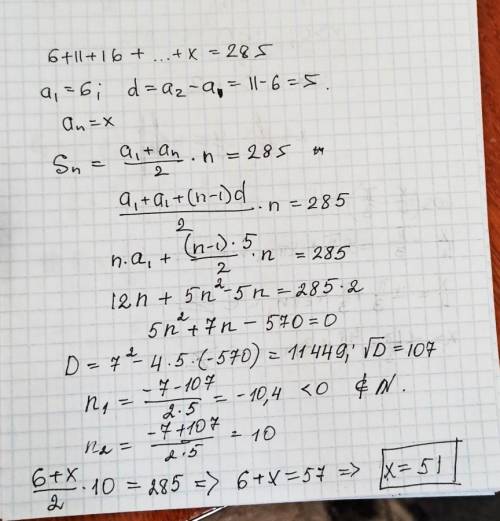 6+11+16 + ... + x = 285
a₁ = 6; d = a₂ - a₁ = 11-6 = 5.
aₙ = x
Sₙ = (a₁ + aₙ)/2 · n = 285
(a₁ + a₁ + (n-1)d)/2 · n = 285
n·a₁ + ((n-1)·5)/2 · n = 285
12n + 5n² - 5n = 285·2
5n² + 7n - 570 = 0
D = 7² - 4·5·(-570) = 11449; √D = 107
n₁ = (-7-107)/(2·5) = -10,4 < 0 ∉ N.
n₂ = (-7+107)/(2·5) = 10
(6+x)/2 · 10 = 285 => 6+x = 57 => x = 51